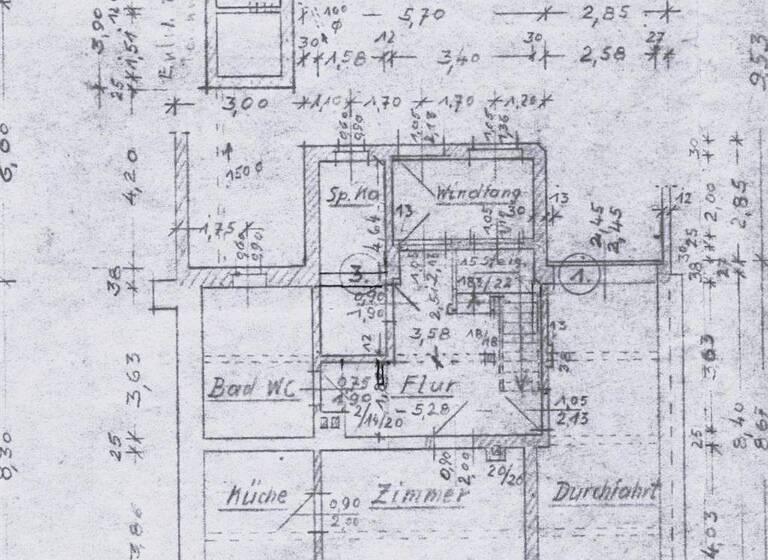 100
5,70
2,85
3,90
1,51
30
12
30
27
1,58
3,40
2,58
25
9,53
3,00
1,10
1,70
1,70
1,20
4,20
150
Sp.Ka
Windfang
13
13
30
12
2,00
2,85
1,75
4,64
2,45
2,45
38
3.
1.
0,90
1,90
3,58
12
13
38
3,63
3,63
Bad WC
Flur
0,75
1,90
5,28
2/14/20
1,05
2,13
8,40
8,67
25
25
8,30
0,90
2,00
20/20
Küche
Zimmer
Durchfahrt
0,90
2,00
3,86
4,03